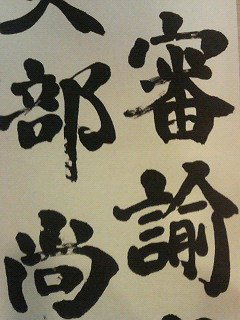 審諭
部尚